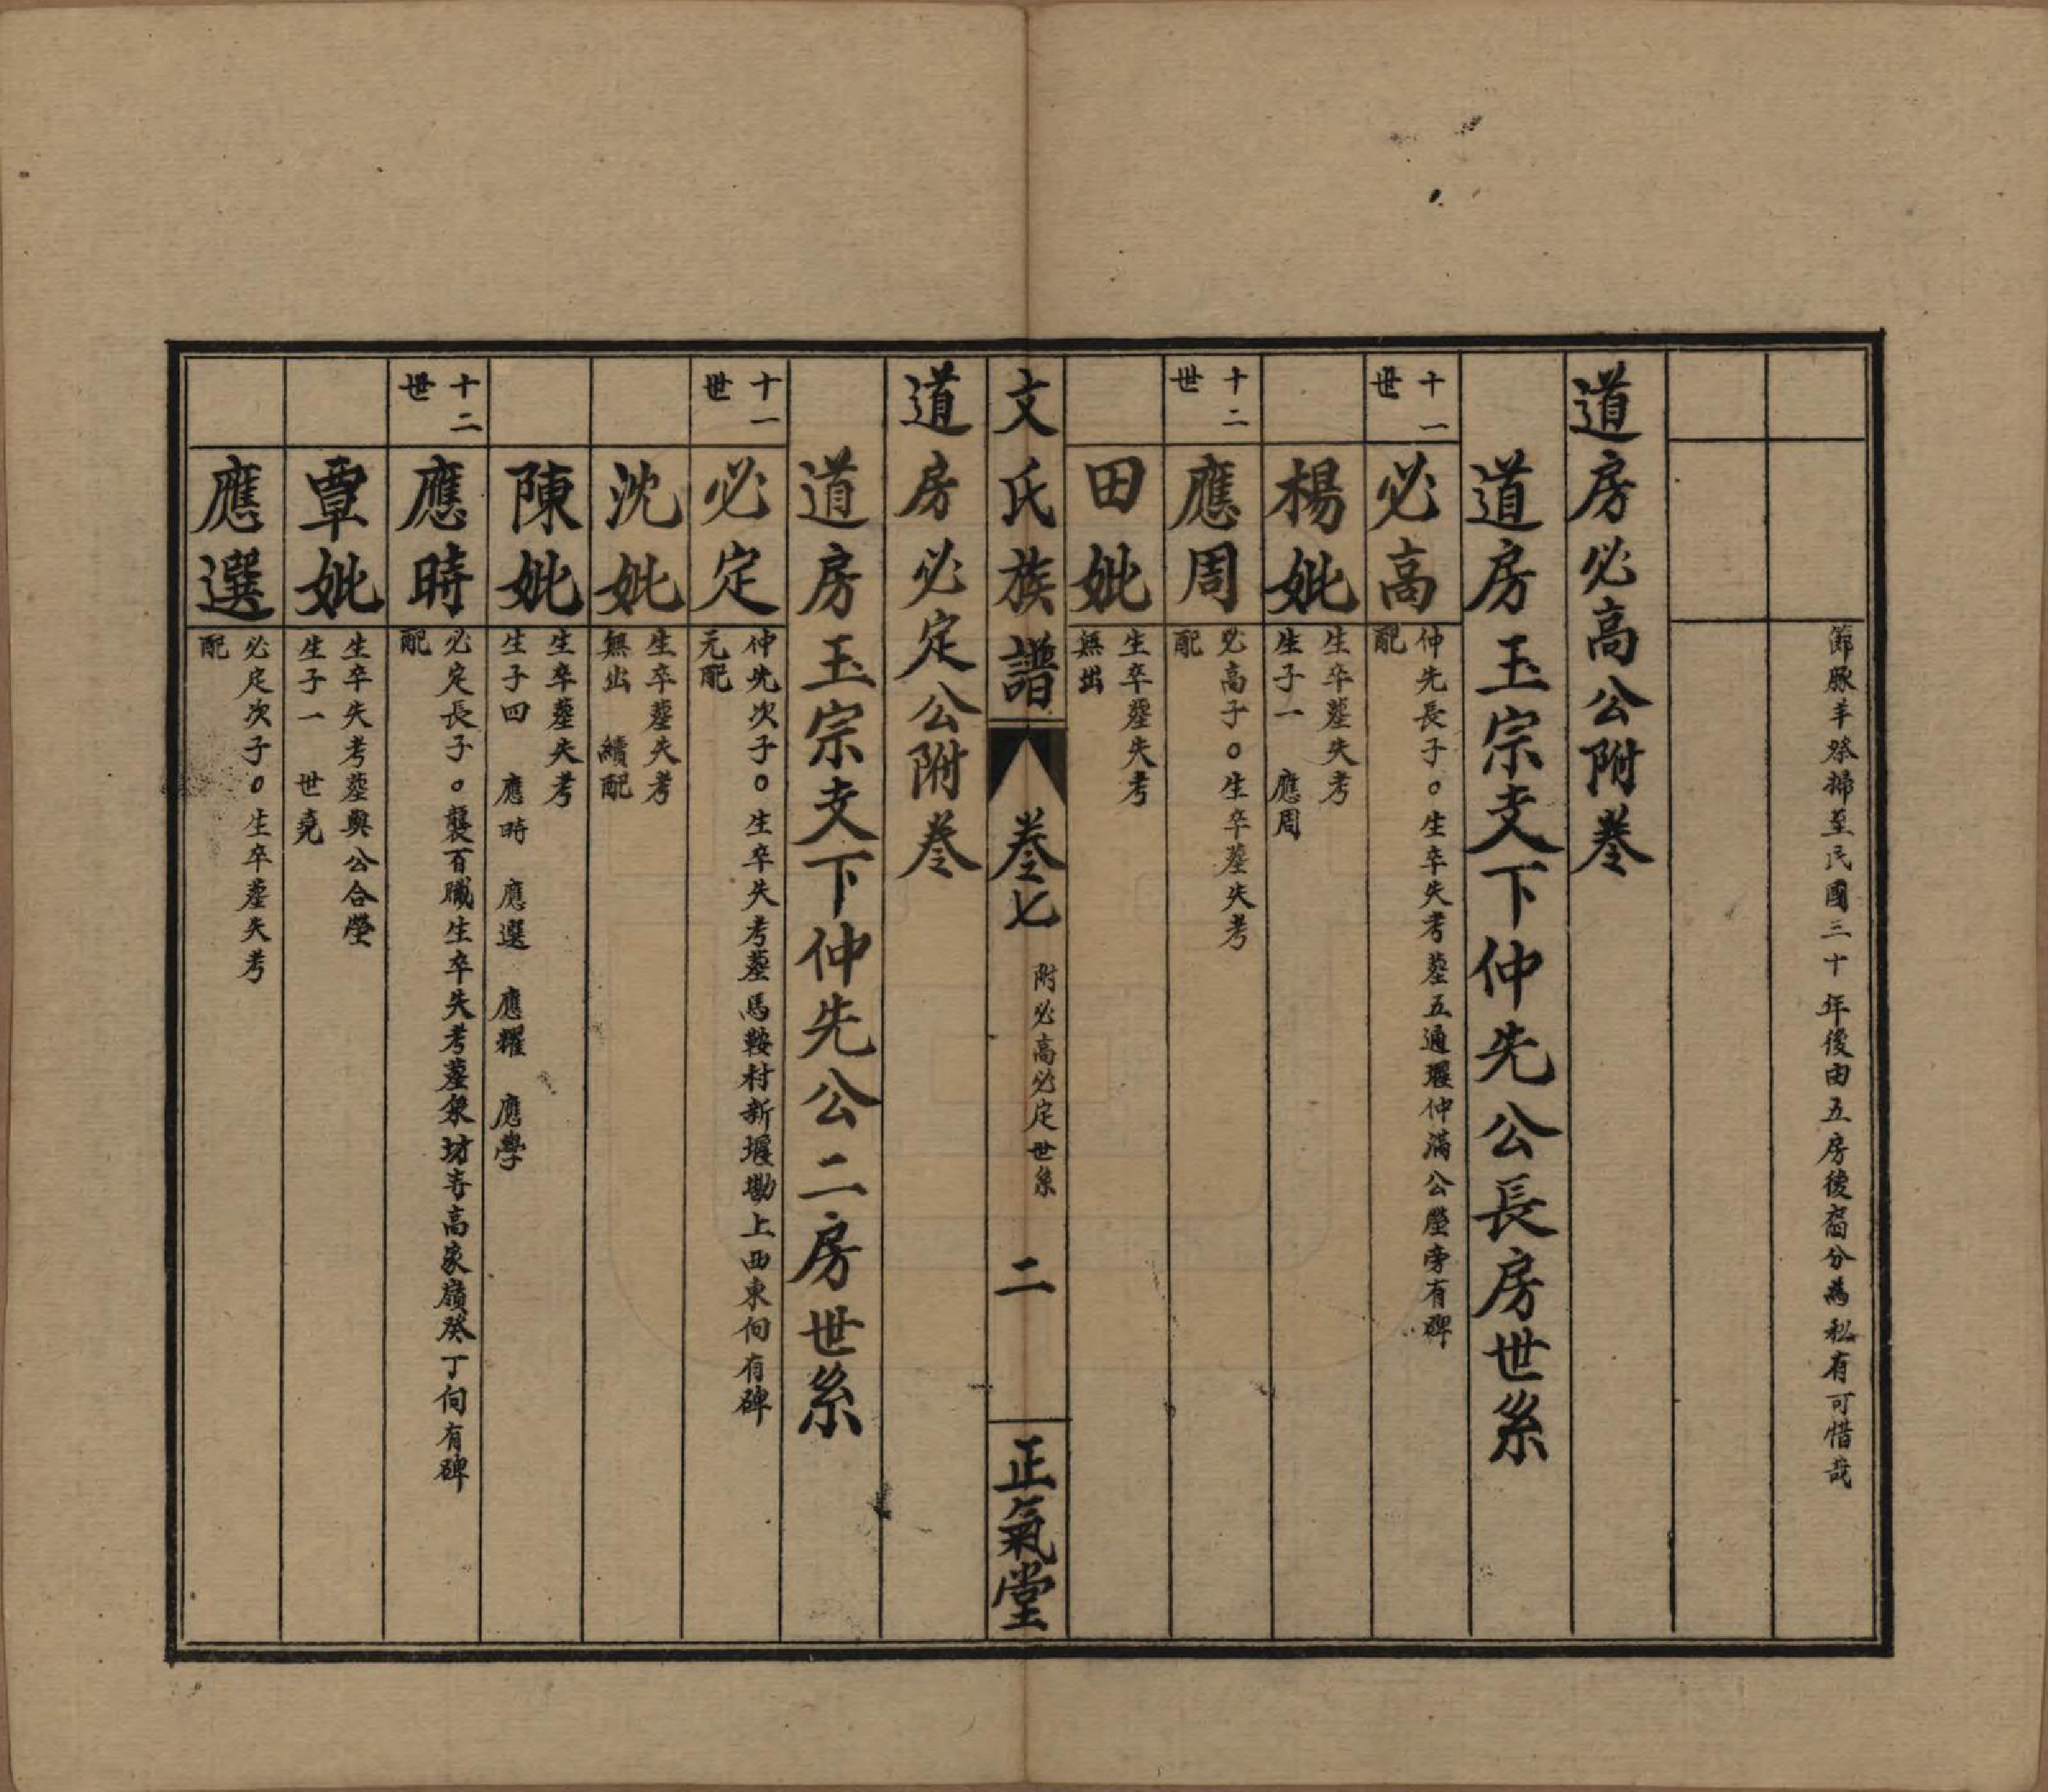 節豚羊祭掃至民國三十年後由五房後裔分為私有可惜哉
道房必高公附卷
道房玉宗支下仲先公長房世系
十一世
必高
仲先長子○生卒失考塟五通堰仲滿公塋旁有碑
配
楊妣
生卒塟失考
生子一 應周
十二世
應周
必高子○生卒塟失考
配
田妣
生卒塟失考
無出
文氏族譜 卷七 附必高必定世系 二 正氣堂
道房必定公附卷
道房玉宗支下仲先公二房世系
十一世
必定
仲先次子○生卒失考塟馬鞍村新堰墈上西東向有碑
元配
沈妣
生卒塟失考
無出 續配
陳妣
生卒塟失考
生子四 應時 應選 應耀 應學
十二世
應時
必定長子○襲百職生卒失考塟泉坊寺高家嶺癸丁向有碑
配
覃妣
生卒失考塟與公合塋
生子一 世堯
應選
必定次子○生卒塟失考
配